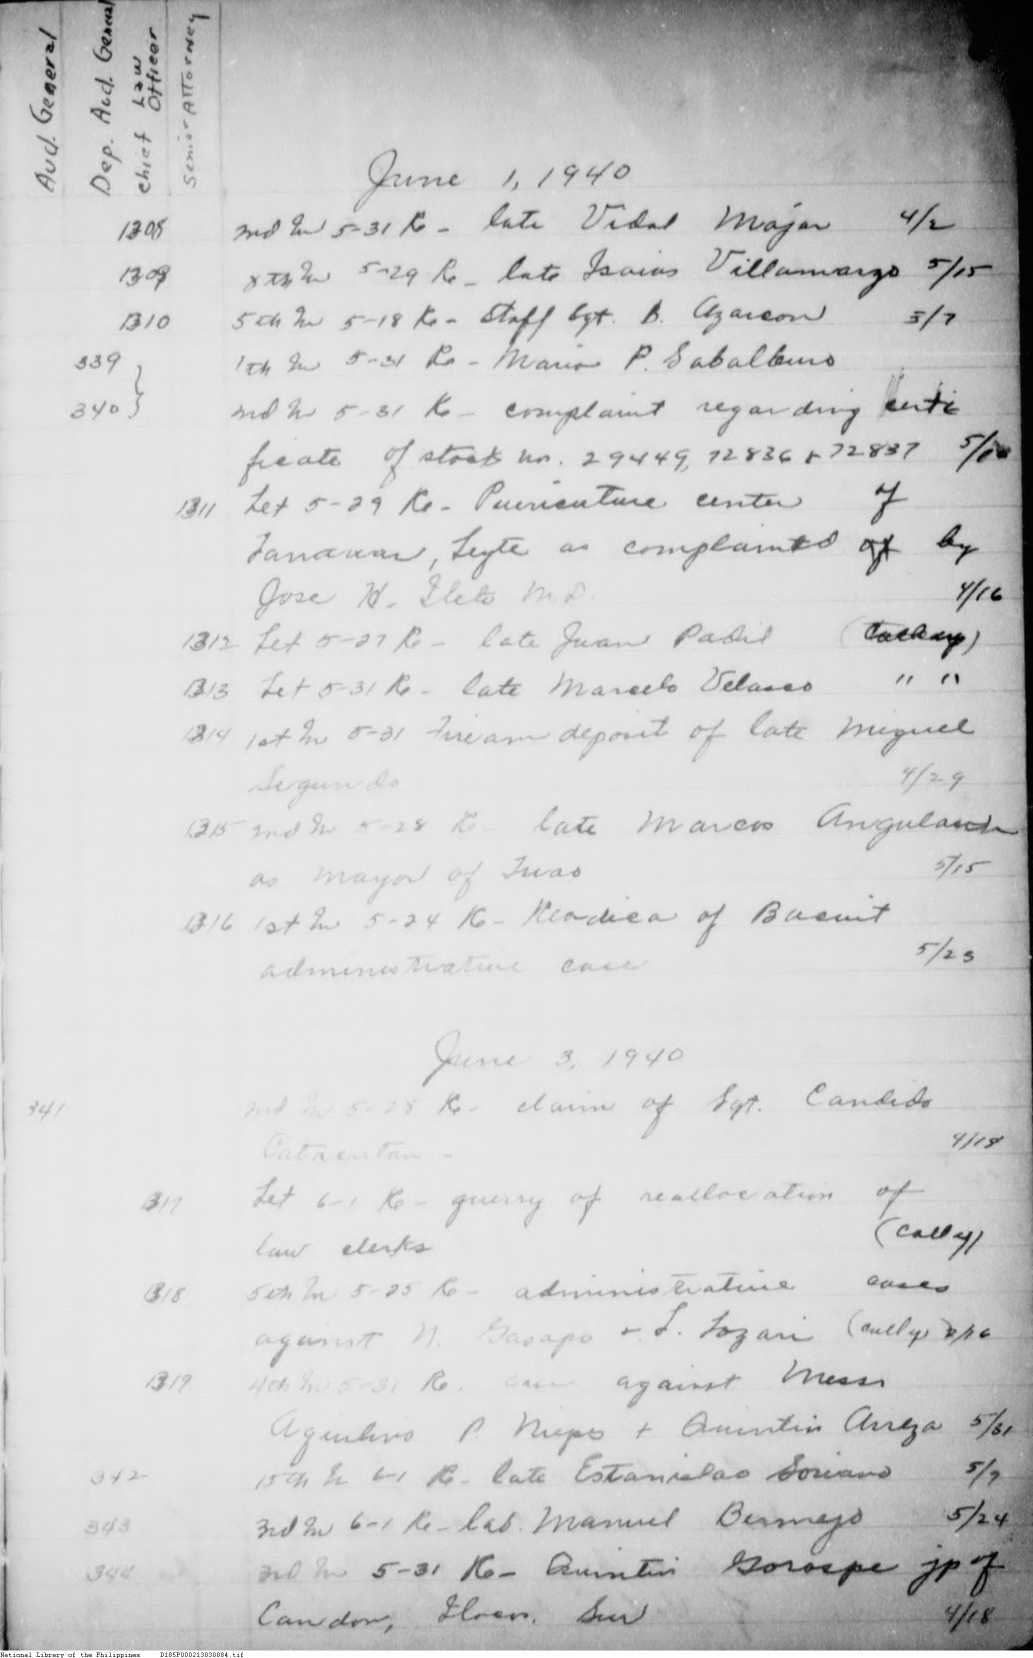 Aud. General
Dep. Aud. General
Chief Law Officer
Senior Attorney
June 1, 1940
1308 2nd In 5-31 Re - late Vidal Major 4/2
1309 8th In 5-29 Re - late Isaias Villamarzo 5/15
1310 5th In 5-18 Re - Staff Sgt. B. Azarcon 5/7
339 5-31 Re - Mario P.
340 2nd In 5-31 Re - complaint regarding certi
ficate of stock no. 29449, 72836 + 72837
1311 Let 5-29 Re - Puericulture center of
Tanauan, Leyte as complained of by
Jose H. Ileto M.D. 4/16
1312 Let 5-27 Re - late Juan Padil
1313 Let 5-31 Re - late Marcelo Velasco " "
1314 1st In 5-31 Firearm deposit of late Miguel
Segundo 4/29
1315 2nd In 5-28 Re - late Marcos
as mayor of Tuao 5/15
1316 1st In 5-24 Re - of Bacuit
administrative case 5/23
June 3, 1940
341 2nd In 5-28 Re - claim of Sgt. Candido
4/18
1317 Let 6-1 Re - querry of reallocation of
law clerks
1318 5th In 5-25 Re - administrative cases
against N. Gasapo + L. Lozari
1319 4th In 5-31 Re. case against Messr
P. Niepo + Quintin Arreza 5/31
342 15th In 6-1 Re - late Estanislao Soriano 5/7
343 3rd In 6-1 Re - Lab. Manuel Bermejo 5/24
344 3rd In 5-31 Re - Quintin Gorospe jp of
Candon, Ilocos Sur 4/18
National Library of the Philippines D185P000213830084.tif